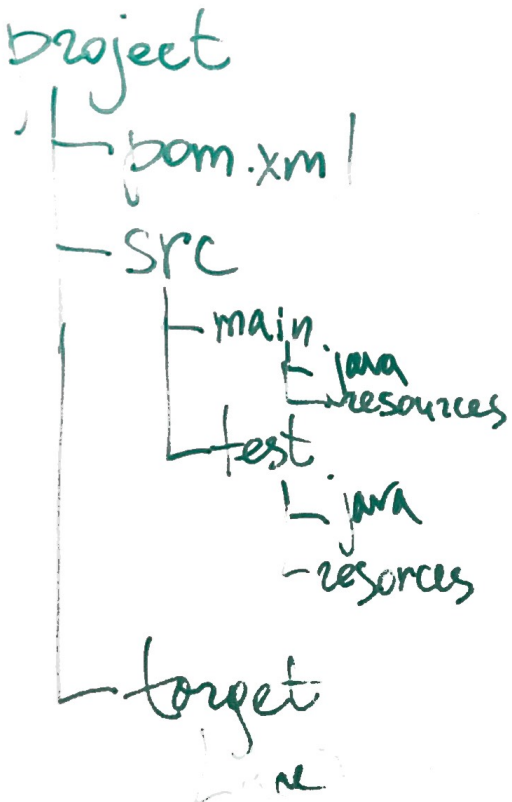 project
pom.xml
src
main
java
resources
test
java
resorces
target